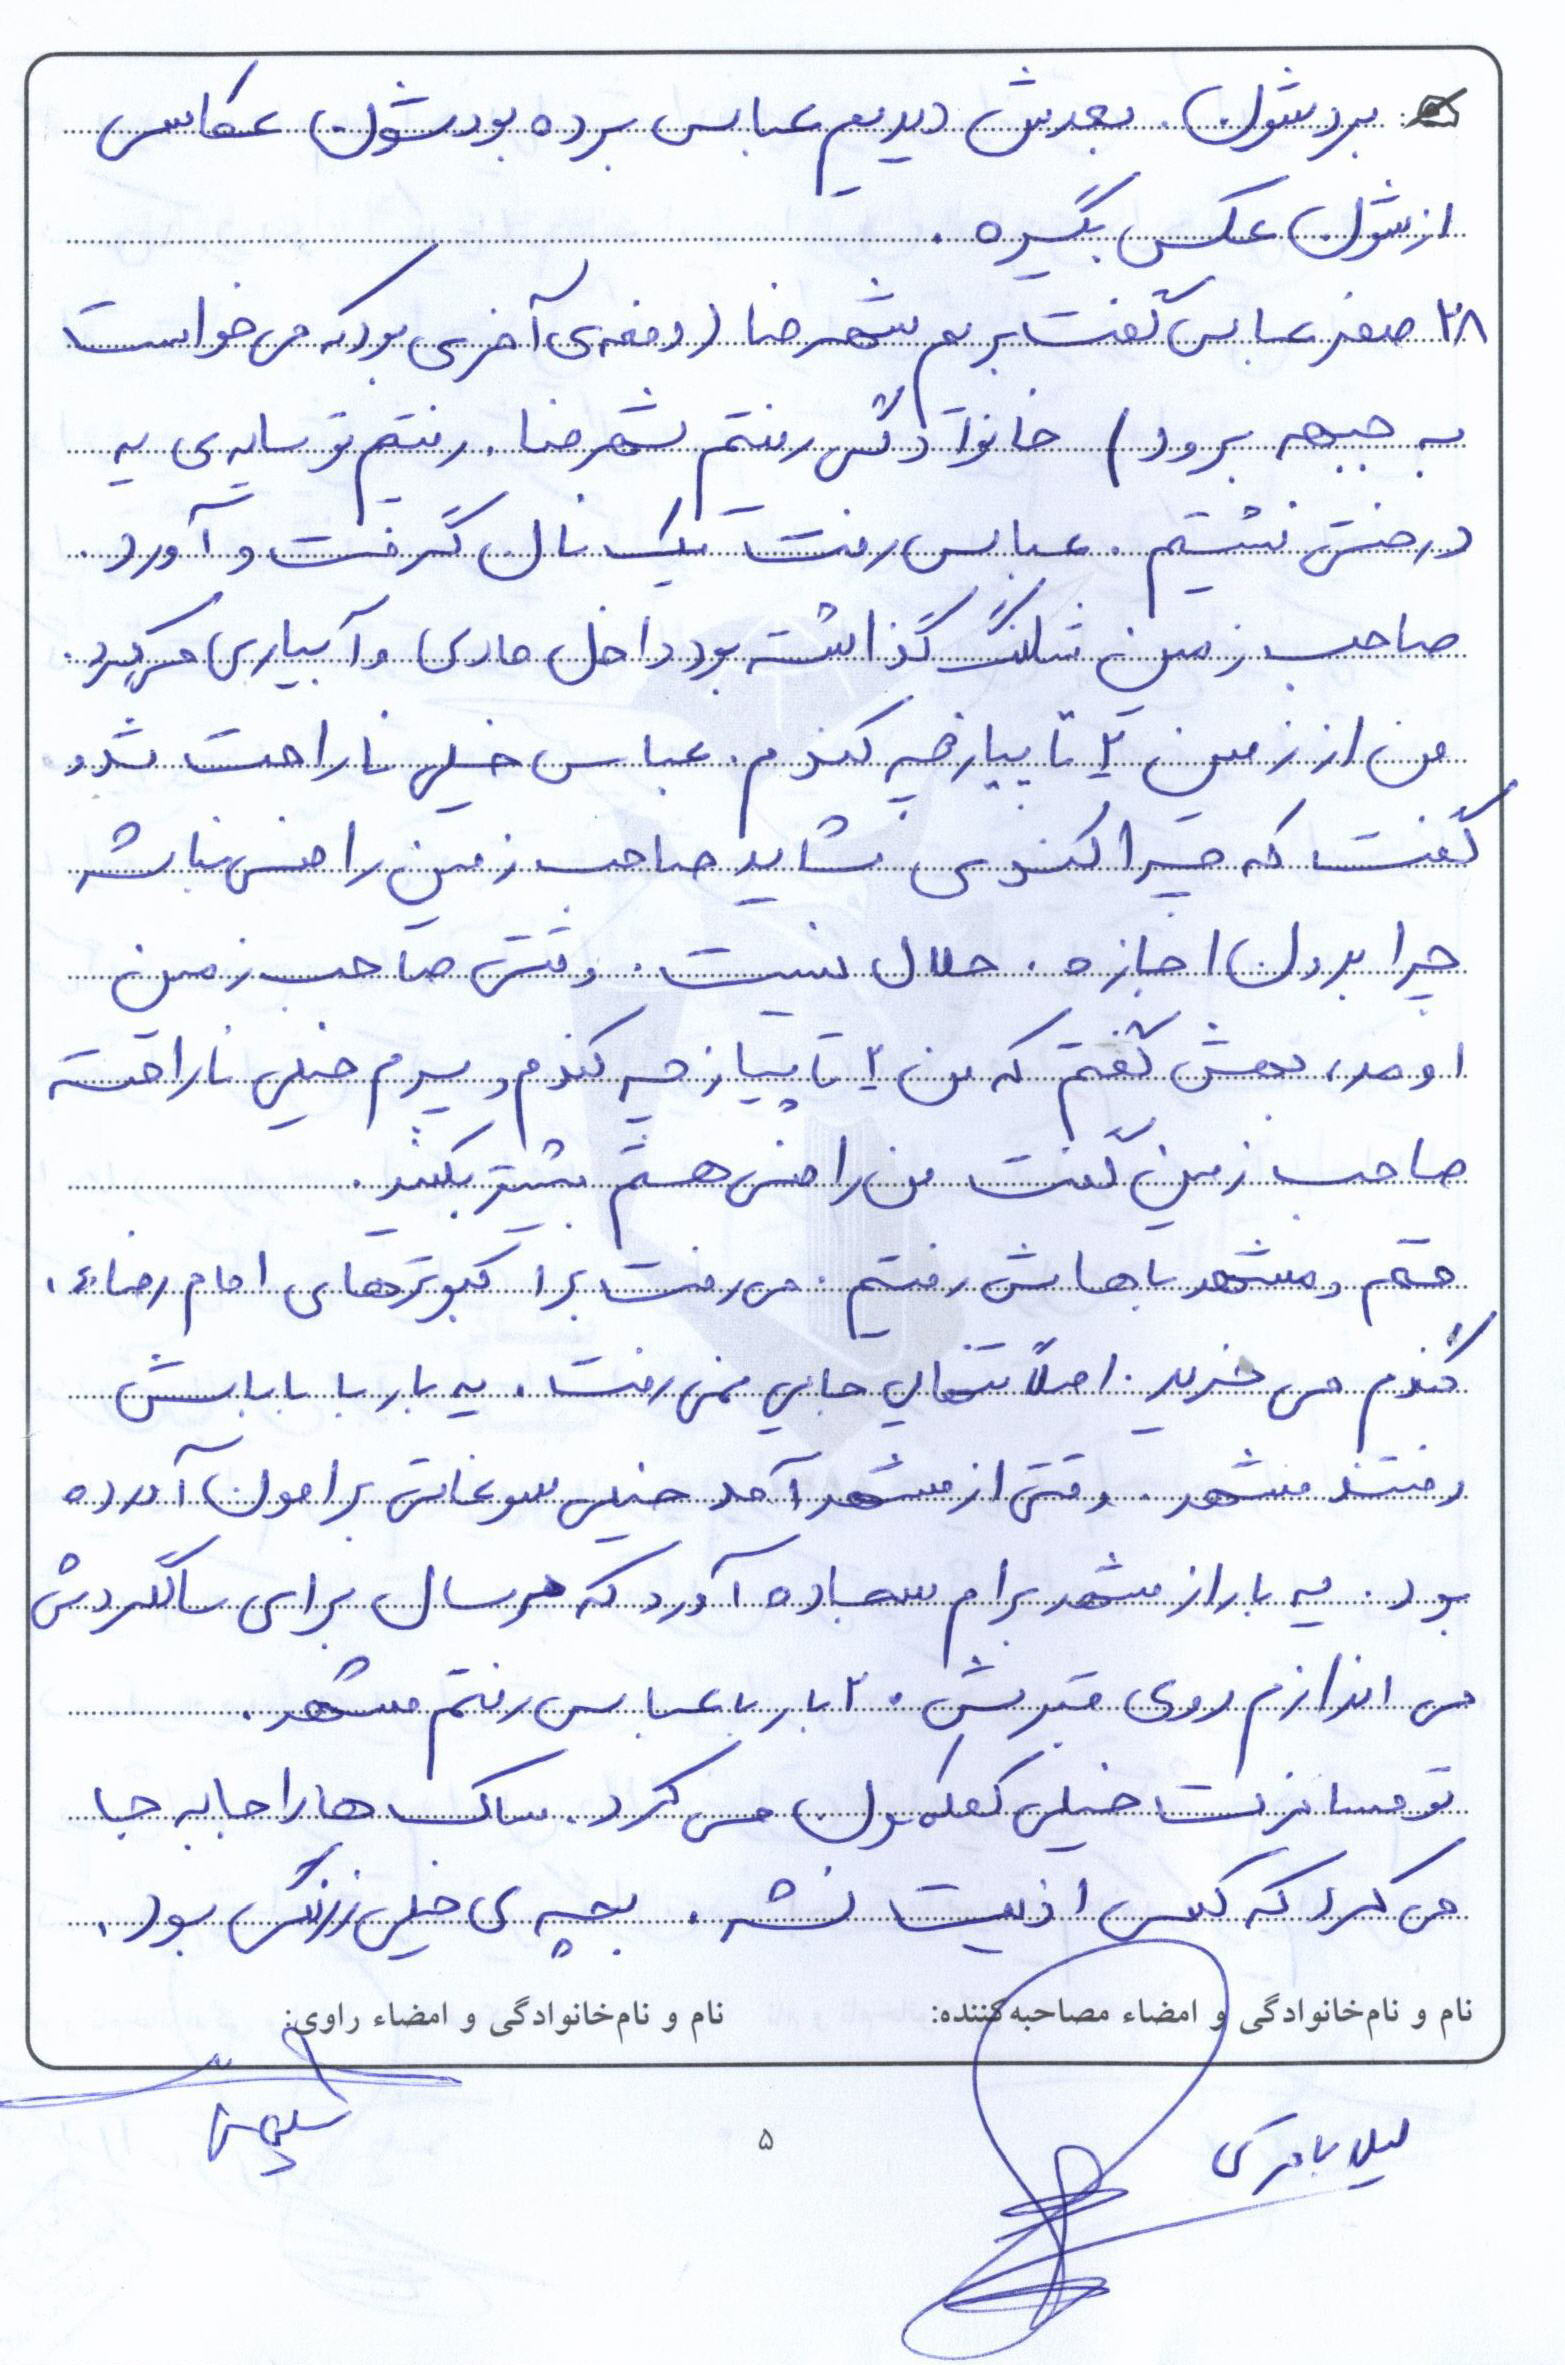 بردشون. بعدش دیدیم عباس برده بودشون عکاسی
ازشون عکس بگیره.
۲۸ صفر عباس گفت بریم شهرضا (دفعه‌ی آخری بود که می خواست
به جبهه برود) خانوادگی رفتیم شهرضا. رفتیم تو سایه‌ی یه
درختی نشستیم. عباس رفت یک نان گرفت و آورد.
صاحب زمین شلنگ گذاشته بود داخل و آبیاری می‌کرد.
من از زمین ۲ تا پیازچه کندم. عباس خیلی ناراحت شد و
گفت که چرا کندی شاید صاحب زمین راضی نباشه
چرا بدون اجازه. حلال نیست. وقتی صاحب زمین
اومد، بهش گفتم که من ۲ تا پیازچه کندم و پسرم خیلی ناراحته
صاحب زمین گفت من راضی هستم بیشتر بکنید.
قم و مشهد باهاش رفتیم. می رفت برا کبوترهای امام رضا(ع)
گندم می خرید. اصلاً تنهایی جایی نمی رفت. یه بار با باباش
رفتند مشهد. وقتی از مشهد آمد خیلی سوغاتی برامون آورده
بود. یه بار از مشهد برام سجاده آورد که هر سال برای سالگردش
می اندازم روی قبرش. ۲ بار با عباس رفتم مشهد.
تو مسافرت خیلی کمکمون می کرد. ساک ها را جا به جا
می کرد که کسی اذیت نشه. بچه ی خیلی زرنگی بود.
نام و نام‌خانوادگی و امضاء مصاحبه‌کننده: نام و نام‌خانوادگی و امضاء راوی:
لیلا باقری
۵